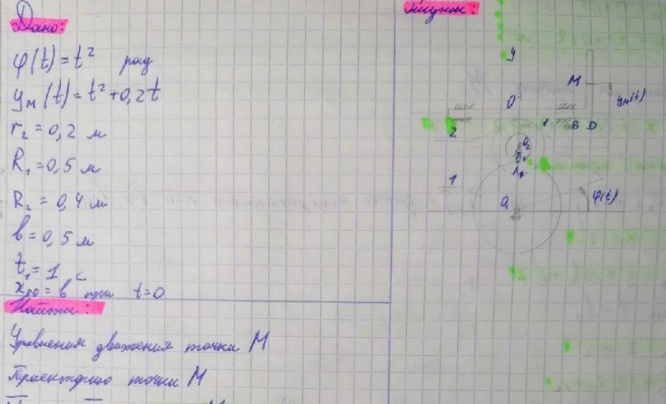 Дано:
φ(t)=t² рад
yм(t)=t²+0,2t
r₂=0,2 м
R₁=0,5 м
R₂=0,4 м
b=0,5 м
t₁=1 с
x_D0=b при t=0
Найти:
Уравнения движения точки M
Траекторию точки M
Рисунок:
y
M
yм(t)
O
2
B D
O₂
A
1
O₁
φ(t)